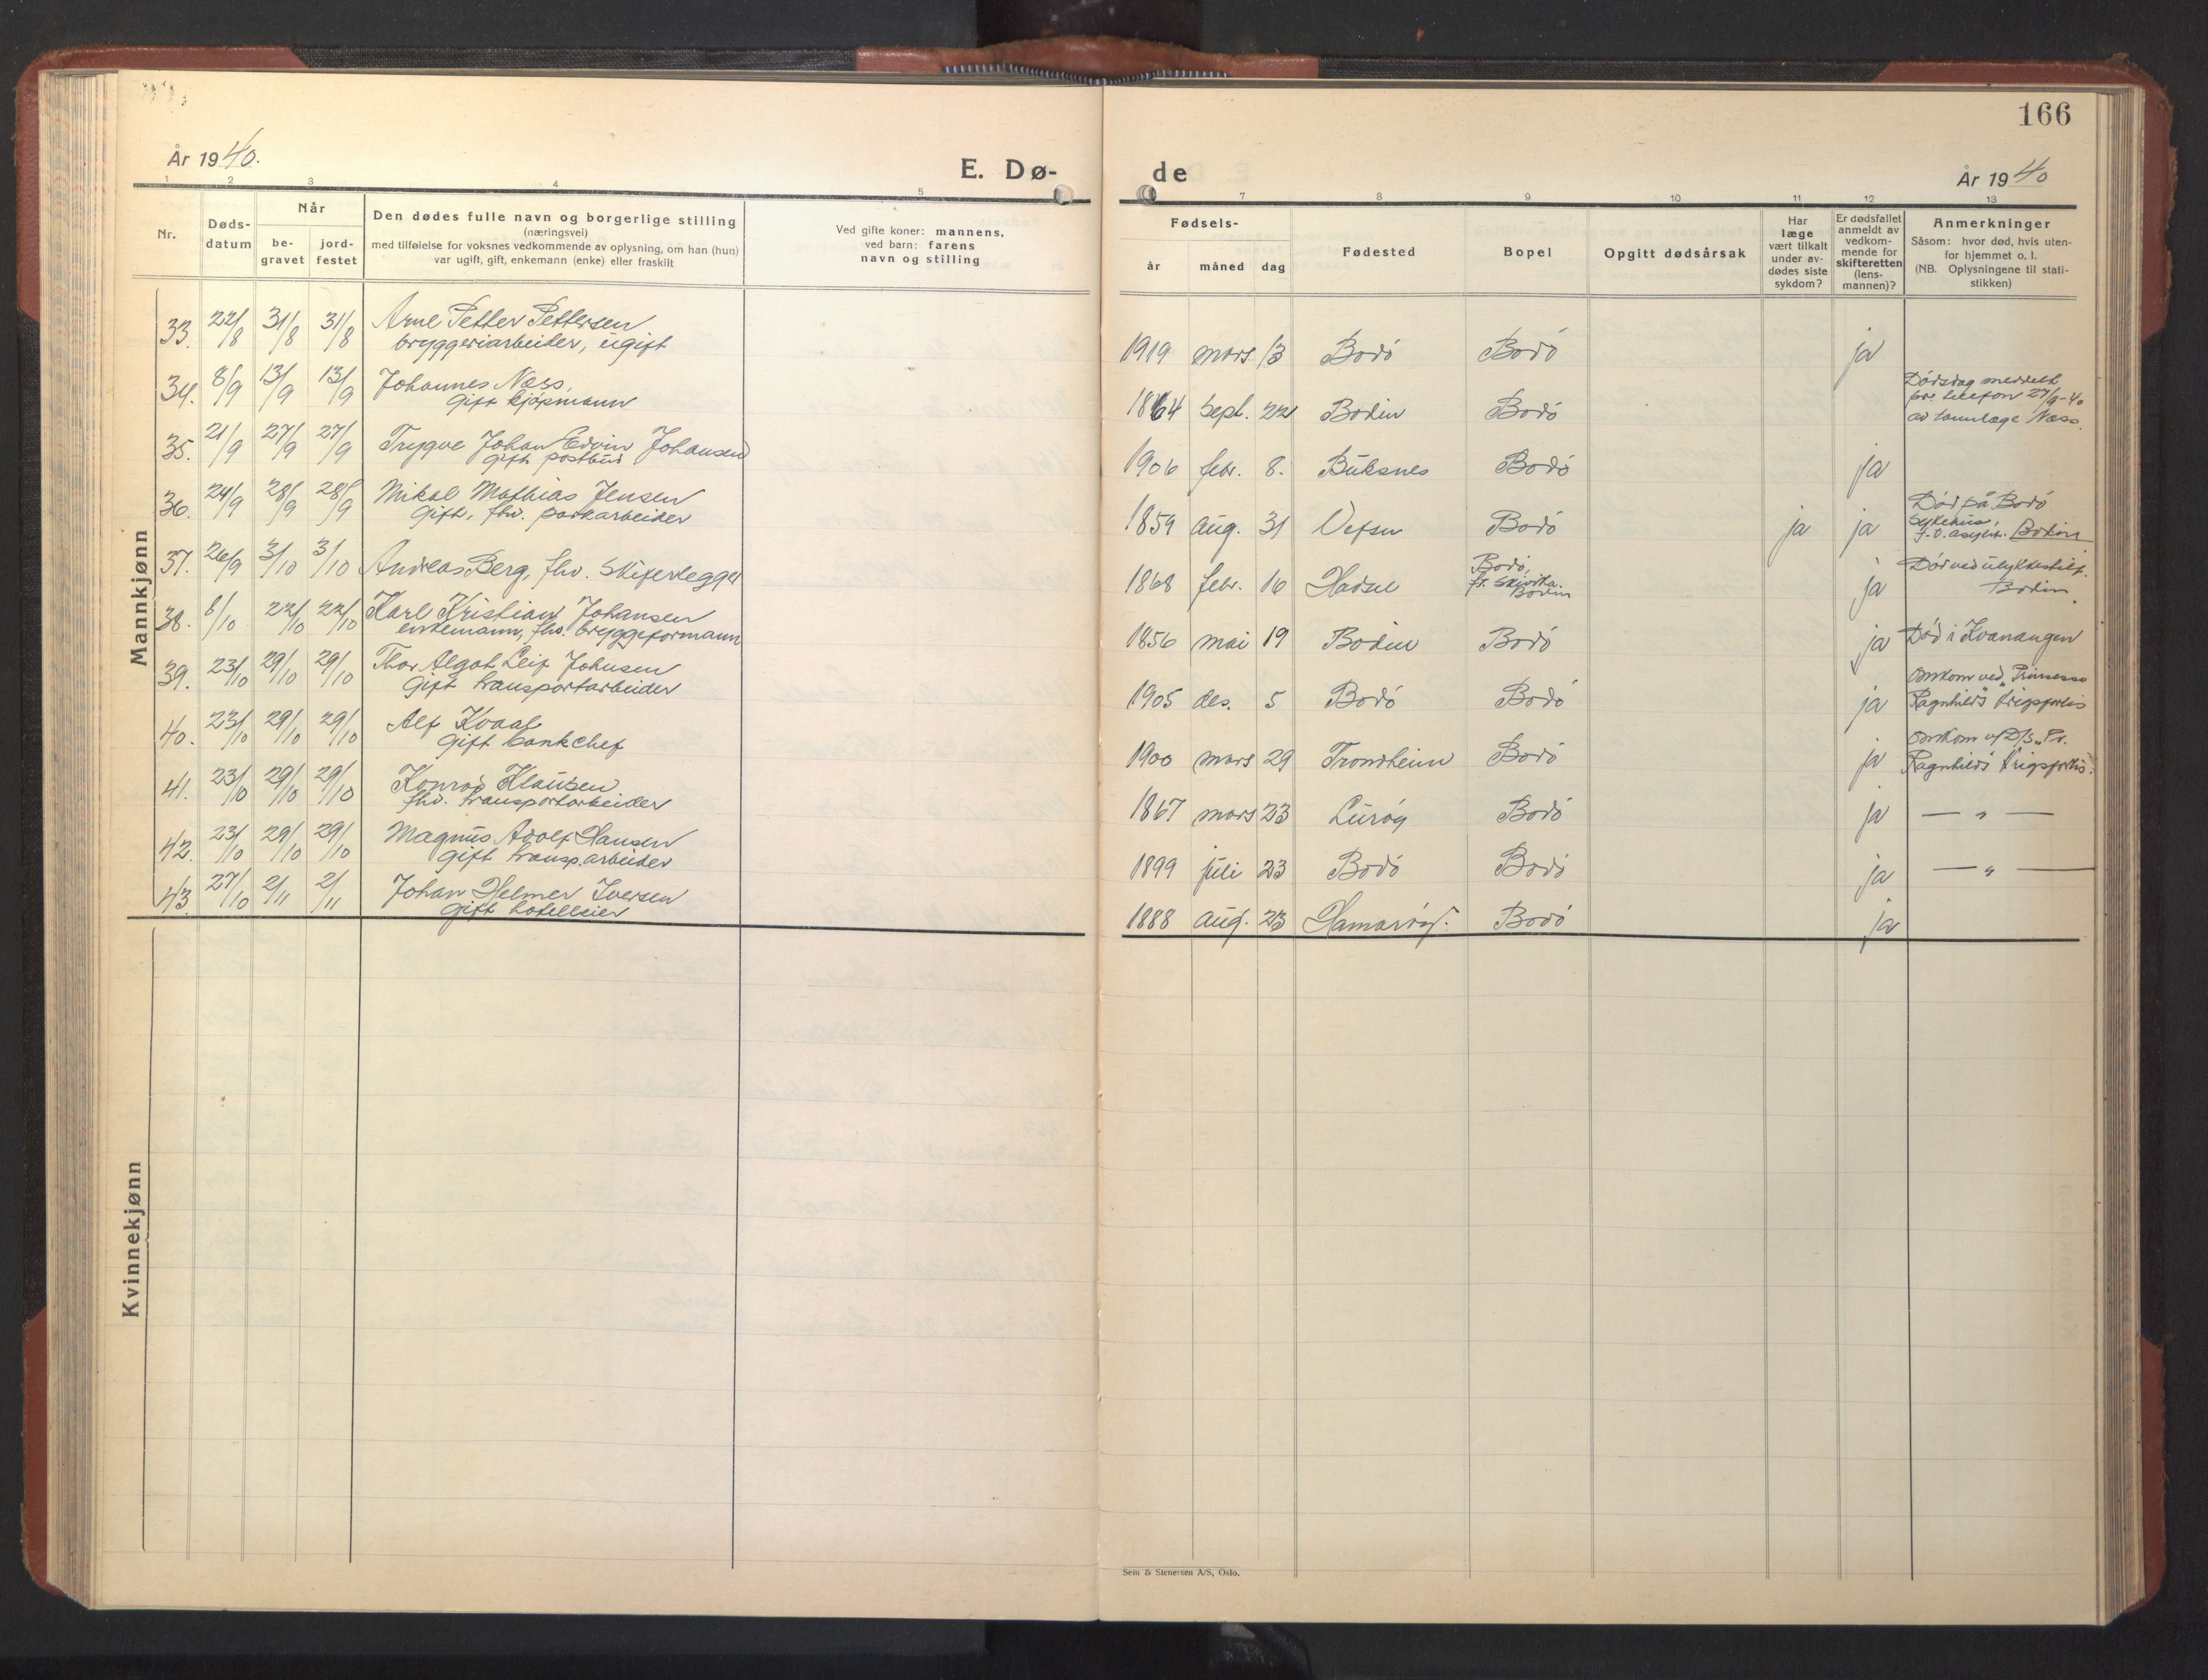 166
År 1940.
E. Dø-
de
År 1940
1 2 3 4 5
7 8 9 10 11 12 13
Nr.
Døds-
datum
Når
be-
gravet
jord-
festet
Den dødes fulle navn og borgerlige stilling
(næringsvei)
med tilføielse for voksnes vedkommende av oplysning, om han (hun)
var ugift, gift, enkemann (enke) eller fraskilt
Ved gifte koner: mannens,
ved barn: farens
navn og stilling
Fødsels-
år måned dag
Fødested
Bopel
Opgitt dødsårsak
Har
læge
vært tilkalt
under av-
dødes siste
sykdom?
Er dødsfallet
anmeldt av
vedkom-
mende for
skifteretten
(lens-
mannen)?
Anmerkninger
Såsom: hvor død, hvis uten-
for hjemmet o. l.
(NB. Oplysningene til stati-
stikken)
Mannkjønn
33. 22/8 31/8 31/8 Arne Petter Pettersen
bryggeriarbeider, ugift
1919 mars 13 Bodö Bodö ja
34. 8/9 13/9 13/9 Johannes Næss,
gift kjöpmann
1864 sept. 22 Bodin Bodö
Dödsdag meddelt
pr. telefon 27/9-40
av tannlæge Næss.
35. 21/9 27/9 27/9 Trygve Johan Edvin Johansen
gift postbud
1906 febr. 8. Buksnes Bodö ja
36. 24/9 28/9 28/9 Mikal Mathias Jensen
gift, fhv. parkarbeider
1859 aug. 31 Vefsn Bodö ja ja
Död på Bodö
Sykehus,
Bodin
37. 26/9 3/10 3/10 Andreas Berg, fhv. Skiferlegger
1868 febr. 16 Hadsel Bodö,
fr. Skivika.
Bodin
ja
Död ved ulykkestilf.
Bodin.
38. 8/10 22/10 22/10 Karl Kristian Johansen
enkemann, fhv. bryggeformann
1856 mai 19 Bodin Bodö ja Död i Kvænangen
39. 23/10 29/10 29/10 Thor Algot Leif Johnsen
gift transportarbeider
1905 des. 5 Bodö Bodö ja
Omkom ved "Prinsesse
Ragnhild's krigsforlis
40. 23/10 29/10 29/10 Alf Kvaal
gift bankchef
1900 mars 29 Trondheim Bodö ja
Omkom v/D/S "Pr.
Ragnhild's krigsforlis.
41. 23/10 29/10 29/10 Konrad Klausen
fhv. transportarbeider
1867 mars 23 Luröy Bodö ja — " —
42. 23/10 29/10 29/10 Magnus Adolf Hansen
gift transp.arbeider
1899 juli 23 Bodö Bodö ja — " —
43. 27/10 2/11 2/11 Johan Helmer Iversen
gift hotelleier
1888 aug. 23 Hamaröy. Bodö ja
Kvinnekjønn
Sem & Stenersen A/S, Oslo.